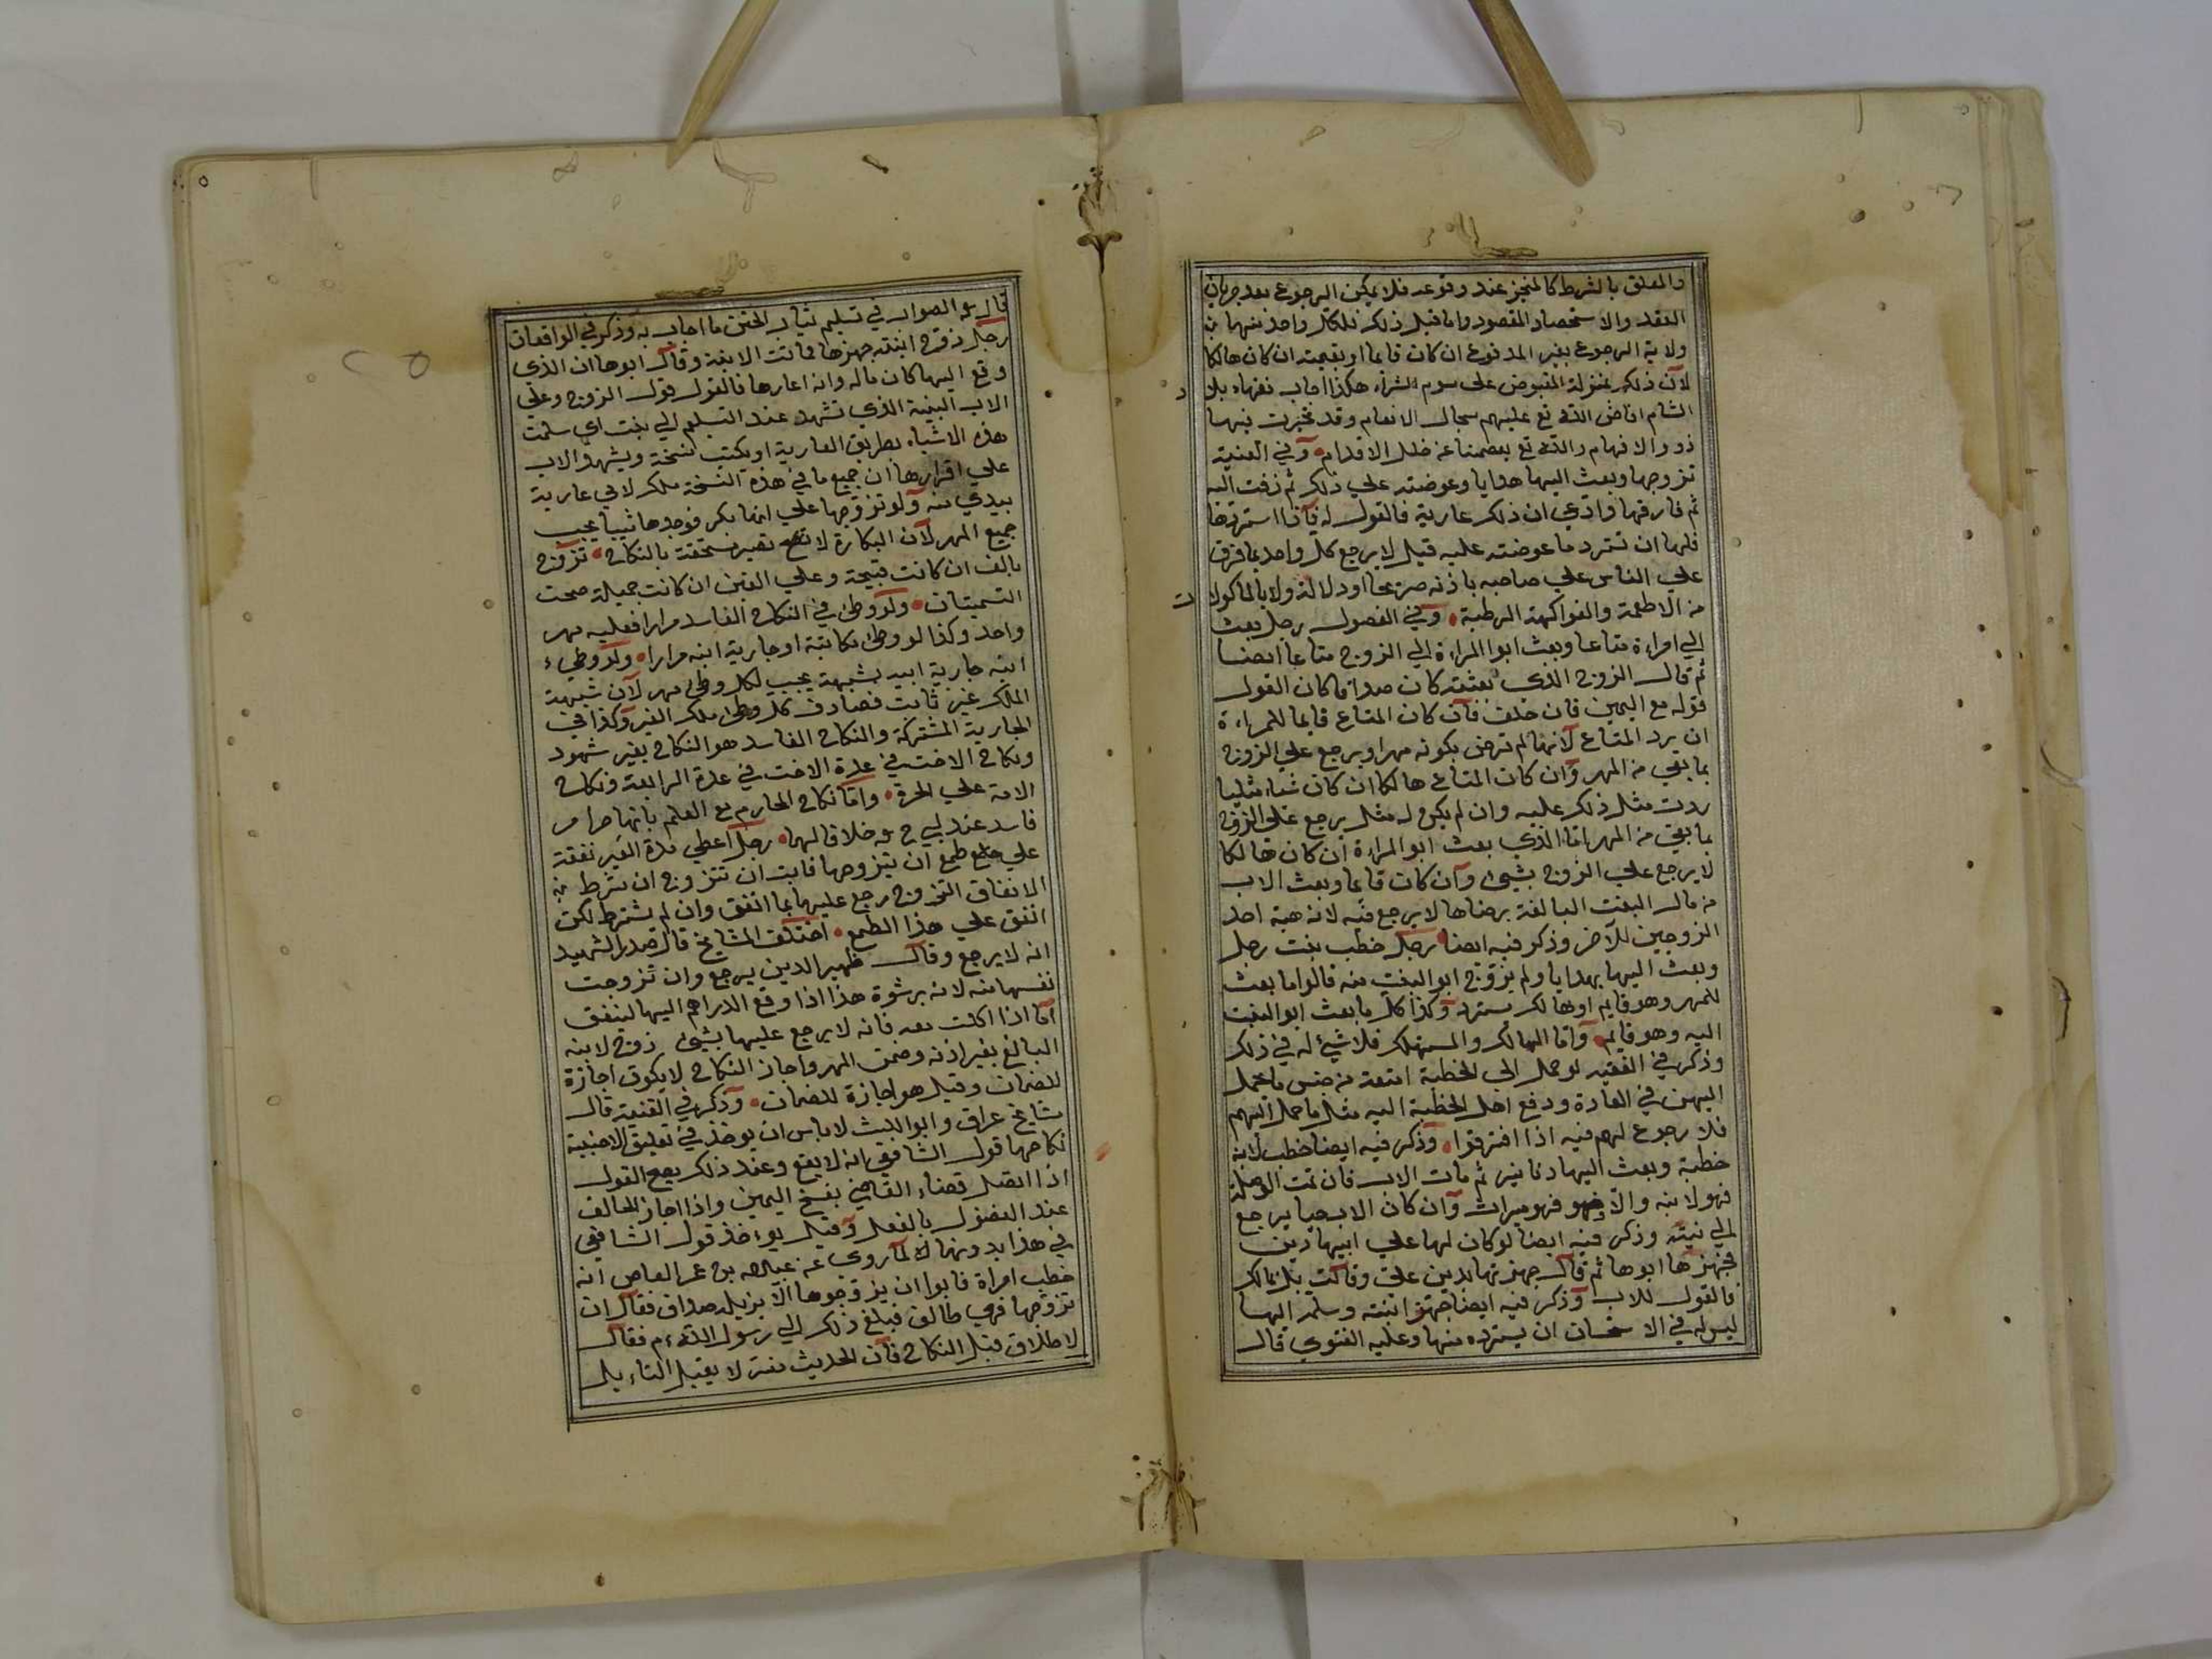 والمعلق بالشرط كالمنجز عند وقوعه فلا يمكن الرجوع بعد جريان
العقد والاستحصاد المقصود واما قبل ذلك فلكل واحد منهما
ولاية الرجوع بغير المدفوع ان كان قايما او بقيمته ان كان هالكا
لان ذلك بمنزلة المقبوض على سوم الشراء هكذا اجاب فقهاء بلاد
الشام افاض الله تع عليهم سجال الانعام وقد تحيرت فيها
ذووا الافهام والله تع يعصمنا عن خلل الاقدام وفي القنية
تزوجها وبعث اليها هدايا وعوضته على ذلك ثم زفت اليه
ثم فارقها وادعي ان ذلك عارية فالقول له فاذا استردها
فلها ان تسترد ما عوضته عليه قيل لا يرجع كل واحد بما فرق
علي الناس علي صاحبه باذنه صريحا او دلالة ولا بالماكولات
من الاطعمة والفواكهة الرطبة وفي الفصول رجل بعث
الي امراءة متاعا وبعث ابوا المراءة الي الزوج متاعا ايضا
ثم قال الزوج الذي بعثته كان صداقا كان القول
قوله مع اليمين فان حلف فان كان المتاع قايما للمراءة
ان يرد المتاع لانها لم ترض بكونه مهرا ويرجع علي الزوج
بما بقي من المهر وان كان المتاع هالكا ان كان شياء مثليا
ردت مثل ذلك عليه وان لم يكن له مثل يرجع علي الزوج
بما بقي من المهر اما الذي بعث ابو المراءة ان كان هالكا
لا يرجع علي الزوج بشيئ وان كان قايما وبعث الاب
من مال البنت البالغة برضاها لا يرجع فيه لانه هبة احد
الزوجين للآخر وذكر فيه ايضا رجل خطب بنت رجل
وبعث اليها بهدايا ولم يزوج ابو البنت منه قالوا ما بعث
للمهر وهو قايم او هالك يسترد وكذا كل ما بعث ابو البنت
اليه وهو قايم واما الهالك والمستهلك فلا شيئ له في ذلك
وذكر في الفقيه لو حمل الي الخطبة امتعة من جنس ما يحمل
اليهن في العادة ودفع اهل الخطبة اليه مثل ما حمل اليهم
فلا رجوع لهم فيه اذا افترقوا وذكر فيه ايضا خطب لابنه
خطبة وبعث اليها دنانير ثم مات الاب فان تمت الوصلة
فهو لابنه والا فهو ميراث وان كان الاب حيا يرجع
الي نيته وذكر فيه ايضا لو كان لها علي ابيها دين
فجهزها ابوها ثم قال جهزتها بدين علي وقالت بل بمالك
فالقول للاب وذكر فيه ايضا جهز ابنته وسلم اليها
ليس له في الاستحسان ان يسترده منها وعليه الفتوي قال
قال الصواب في تسليم ثياب الختن ما اجاب به وذكر في الواقعات
رجل زوج ابنته جهزها فماتت الابنة وقال ابوها ان الذي
وقع اليها كان ماله وانه اعارها فالقول قول الزوج وعلي
الاب البينة الذي تشهد عند التسليم الي بنت اي سلمت
هذه الاشياء بطريق العارية او يكتب نسخة ويشهد الاب
علي اقرارها ان جميع ما في هذه النسخة ملك لابي عارية
بيدي منه ولو تزوجها علي انها بكر فوجدها ثيبا يجب
جميع المهر لان البكارة لا تصير مستحقة بالنكاح تزوج
بالف ان كانت قبيحة وعلي الفين ان كانت جميلة صحت
التسميتان ولو وطئ في النكاح الفاسد مرارا فعليه مهر
واحد وكذا لو وطئ مكاتبة او جارية ابنه مرارا ولو وطيء
ابنه جارية ابيه بشبهة يجب لكل وطئ مهر لان شبهة
الملك غير ثابت فصادف كل وطئ ملك الغير وكذا في
الجارية المشتركة والنكاح الفاسد هو النكاح بغير شهود
ونكاح الاخت في عدة الاخت في عدة الرابعة ونكاح
الامة علي الحرة واما نكاح المحارم مع العلم بانها حرام
فاسد عند ابي ح خلافا لهما رجل اعطي مدة الغير نفقة
علي طمع ان يتزوجها فابت ان تتزوج ان شرط في
الانفاق التزوج رجع عليها بما انفق وان لم يشترط لكن
انفق علي هذا الطمع اختلف المشايخ قال صدر الشهيد
انه لا يرجع وقال ظهير الدين يرجع وان تزوجت
نفسها منه لانه برشوة هذا اذا وقع الدراهم اليها لينفق
اما اذا اكلت معه فانه لا يرجع عليها بشيئ زوج لابنه
البالغ بغير اذنه وضمن المهر واجاز النكاح لا يكون اجازة
للضمان وقيل هو اجازة للضمان وذكر في القنية قال
مشايخ عراق وابو الليث لا باس ان يوخذ في تعليق الاجنبية
نكاحها قول الشافعي انه لا يقع وعند ذلك يصح القول
اذا اتصل قضاء القاضي بفسخ اليمين واذا اجاز الحالف
عند الفضول بالفعل وقيل يوءخذ قول الشافعي
في هذا بدونها لما روي عن عبد الله بن عمر العاص انه
خطب امراة فابوا ان يزوجوها الا بزيادة صداق فقال ان
تزوجها فهي طالق فبلغ ذلك الي رسول الله م فقال
لا طلاق قبل النكاح فان الحديث لا يقبل التاءويل